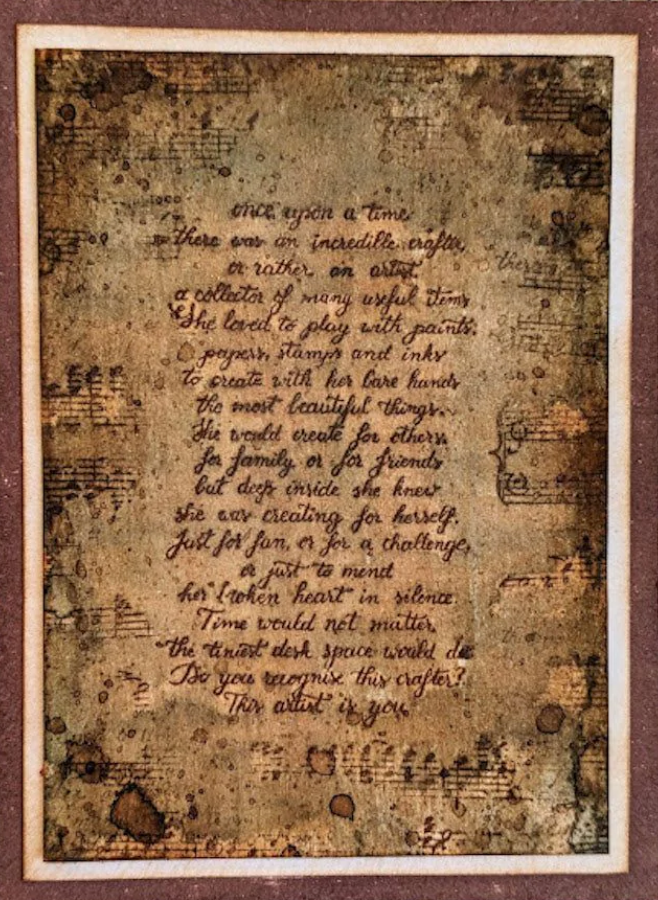 once upon a time
there was an incredible crafter,
or rather an artist,
a collector of many useful items
She loved to play with paints,
papers, stamps and inks
to create with her bare hands
the most beautiful things.
She would create for others
for family or for friends
but deep inside she knew
she was creating for herself.
Just for fun, or for a challenge,
or just to mend
her broken heart in silence.
Time would not matter,
the tiniest desk space would do.
Do you recognise this crafter?
This artist is you.